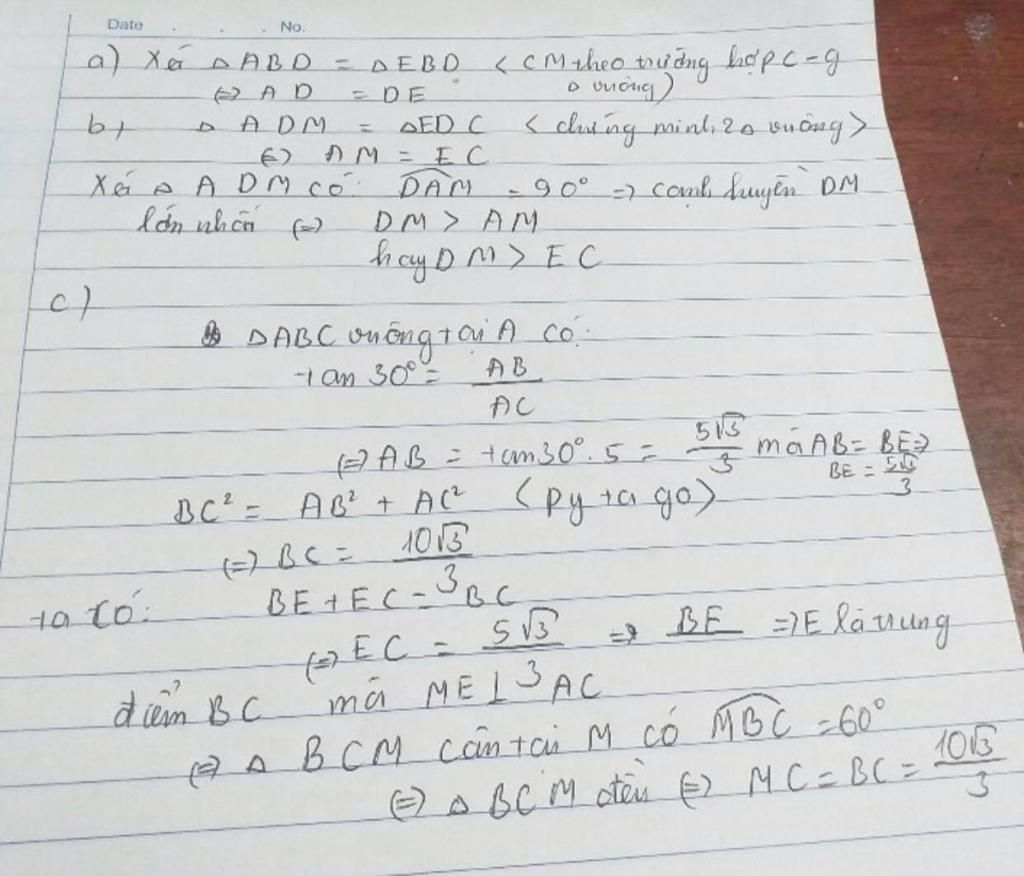 Date . . . No.
a) Xét △ABD = △EBD < CM theo trường hợp C-g
△ vuông)
⇔ AD = DE
b, △ ADM = △EDC < chứng minh 2△ vuông >
⇔ AM = EC
Xét △ ADM có: DAM = 90° ⇒ cạnh huyền DM
lớn nhất ⇔ DM > AM
hay DM > EC
c)
△ABC vuông tại A có:
tan 30° = AB/AC
⇔ AB = tan30°.5 = 5√3/3 mà AB = BE ⇒
BE = 5√3/3
BC² = AB² + AC² < py ta go >
⇔ BC = 10√3/3
ta có: BE + EC = BC
⇔ EC = 5√3/3 ⇒ BE ⇒ E là trung
điểm BC mà ME ⊥ AC
⇔ △ BCM cân tại M có MBC = 60°
⇔ △ BCM đều ⇔ MC = BC = 10√3/3